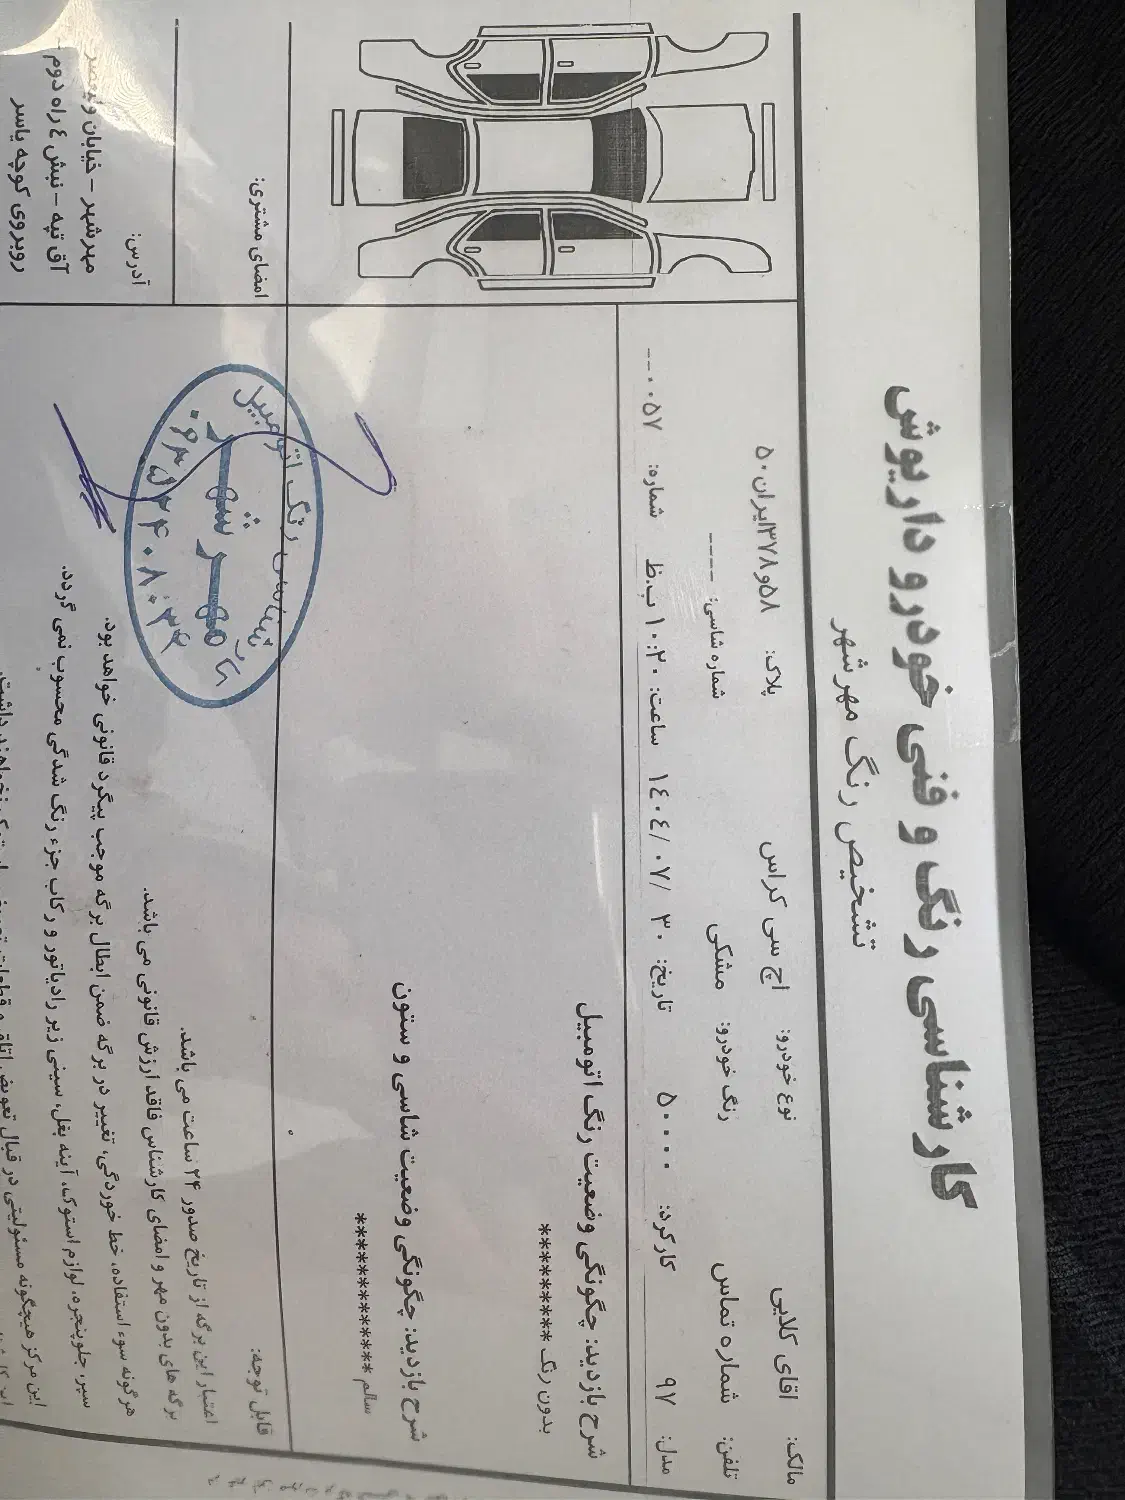 کارشناسی رنگ و فنی خودرو داریوش
تشخیص رنگ مهرشهر
مالک: اقای کلایی نوع خودرو: اچ سی کراس پلاک: ۵۸و۳۷۸ایران۵۰
تلفن: شماره تماس رنگ خودرو: مشکی شماره شاسی: ----
مدل: ۹۷ کارکرد: ۵۰۰۰۰ تاریخ: ۱۴۰۴/۰۷/۳۰ ساعت: ۱۰:۲۰ ب.ظ شماره: ۰۰۵۷--
شرح بازدید: چگونگی وضعیت رنگ اتومبیل
بدون رنگ *********
شرح بازدید: چگونگی وضعیت شاسی و ستون
سالم ***********
امضای مشتری:
قابل توجه:
اعتبار این برگه از تاریخ صدور ۲۴ ساعت می باشد.
برگه های بدون مهر و امضای کارشناس فاقد ارزش قانونی می باشد.
هرگونه سوء استفاده، خط خوردگی، تغییر در برگه ضمن ابطال برگه موجب پیگرد قانونی خواهد بود.
سپر، جلوپنجره، لوازم استوک، آینه بغل، سینی زیر رادیاتور و رکاب جزء رنگ شدگی محسوب نمی گردد.
این مرکز هیچگونه مسئولیتی در قبال تعویض اتاق و قطعات
رنگ اتومبیل
مهرشهر
آدرس:
مهرشهر - خیابان ولیعصر
آق تپه - نبش ٤ راه دوم -
روبروی کوچه یاسر